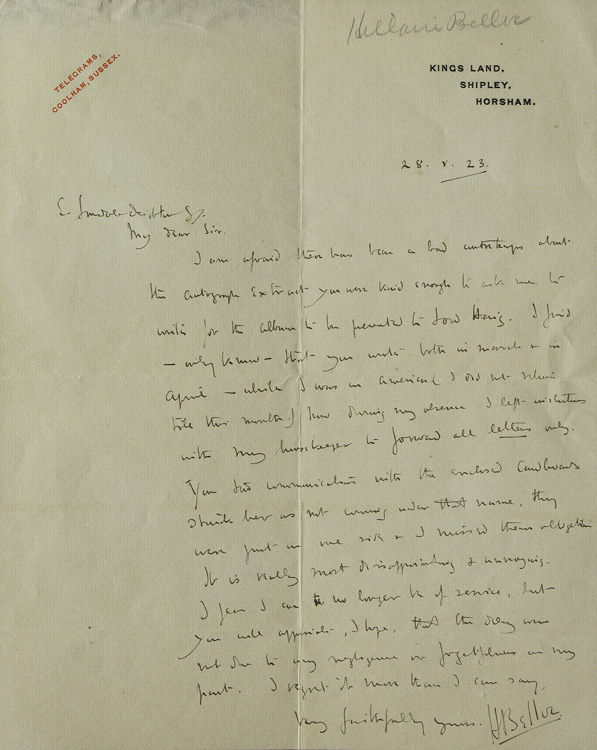 Hillaire Belloc
TELEGRAMS,
COOLHAM, SUSSEX.
KINGS LAND,
SHIPLEY,
HORSHAM.
28. v. 23.
My dear Sir.
I am afraid there has been a bad contretemps about
the autograph extract you were kind enough to ask me to
write for the album to be presented to Lord Haig. I find
— only know — that you wrote both in march & in
April — while I was in America (I did not return
till this month) Now during my absence I left instructions
with my housekeeper to forward all letters only.
Your two communications with the enclosed cardboards
struck her as not coming under that name, they
were put on one side & I missed them altogether
It is really most disappointing & annoying.
I fear I can no longer be of service, but
you will appreciate, I hope, that the delay was
not due to any negligence or forgetfulness on my
part. I regret it more than I can say.
Very faithfully yours. HBelloc